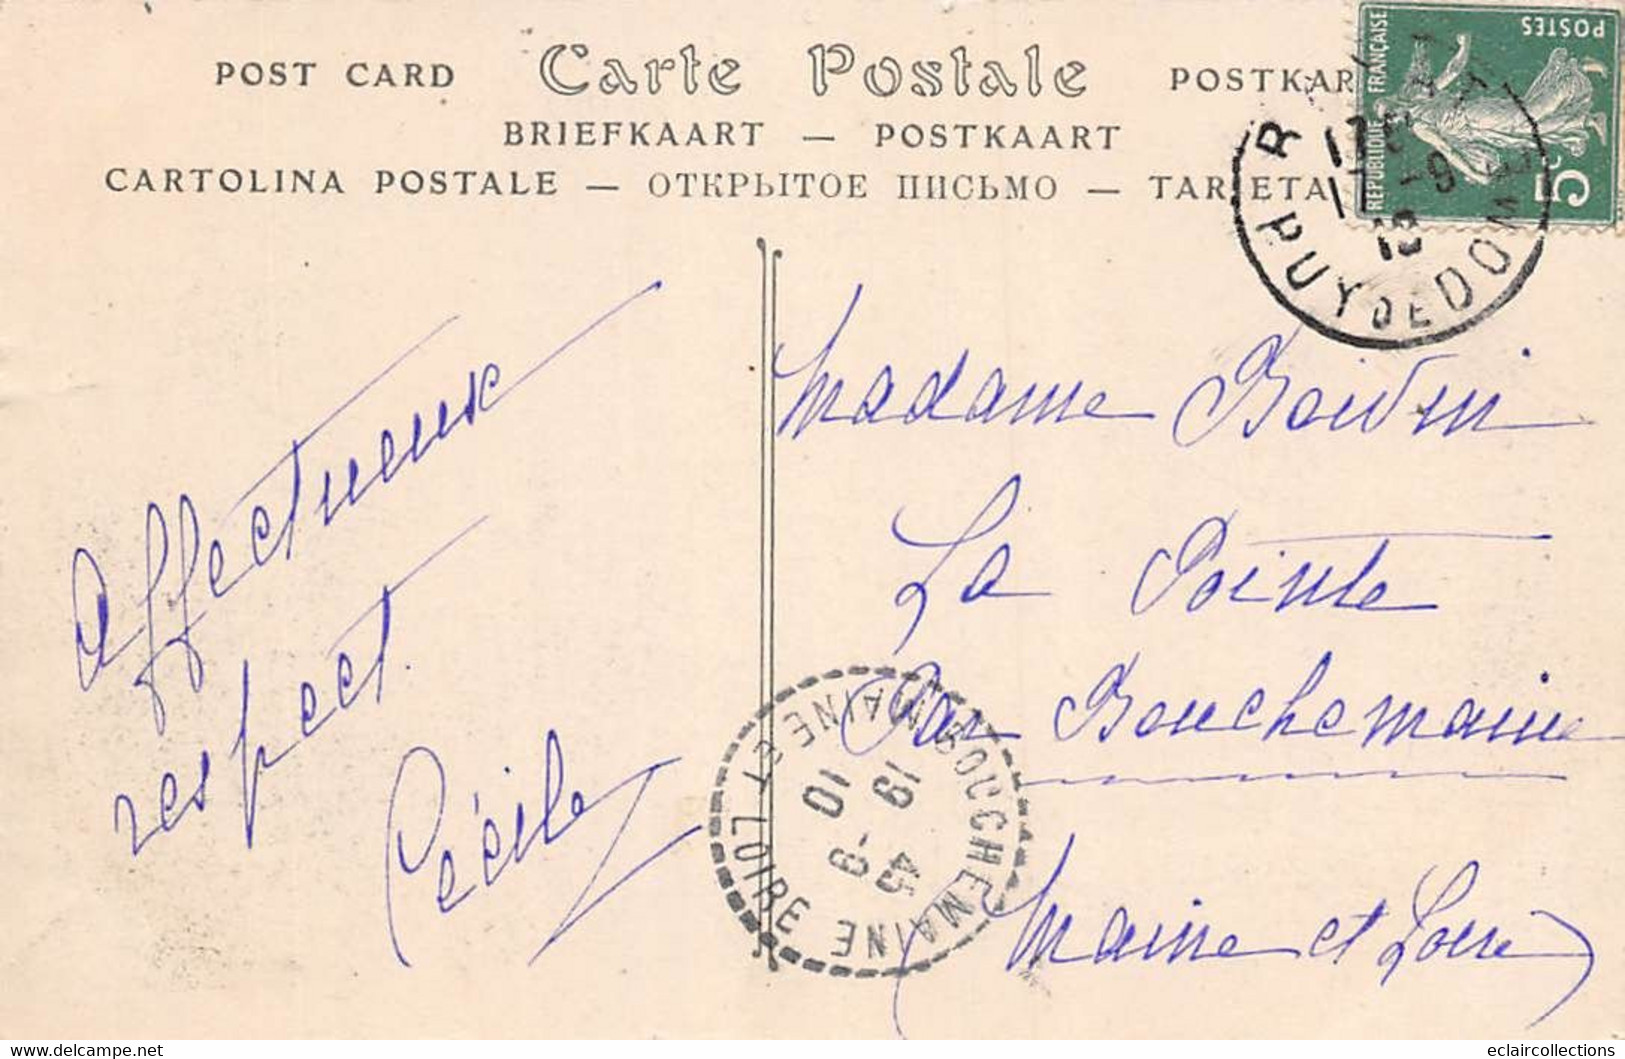 POST CARD Carte Postale POSTKAR
BRIEFKAART — POSTKAART
CARTOLINA POSTALE — ОТКРЫТОЕ ПИСЬМО — TARJETA
POSTES
REPUBLIQUE FRANÇAISE
5c
PUY DE DOME
17 -9
10
Affectueux
respect.
Cécile
Madame Boidin
La Pointe
Par Bouchemaine
Maine et Loire
BOUCHEMAINE
MAINE ET LOIRE
19 -9
10
delcampe.net
eclaircollections